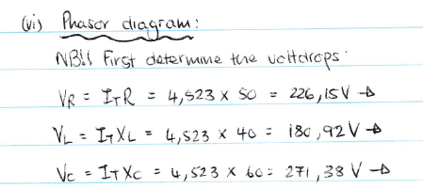 (vi) Phasor diagram:
NB!! First determine the voltdrops.
VR = ITR = 4,523 x 50 = 226,15V →
VL = ITXL = 4,523 x 40 = 180,92V →
VC = ITXC = 4,523 x 60 = 271,38 V →